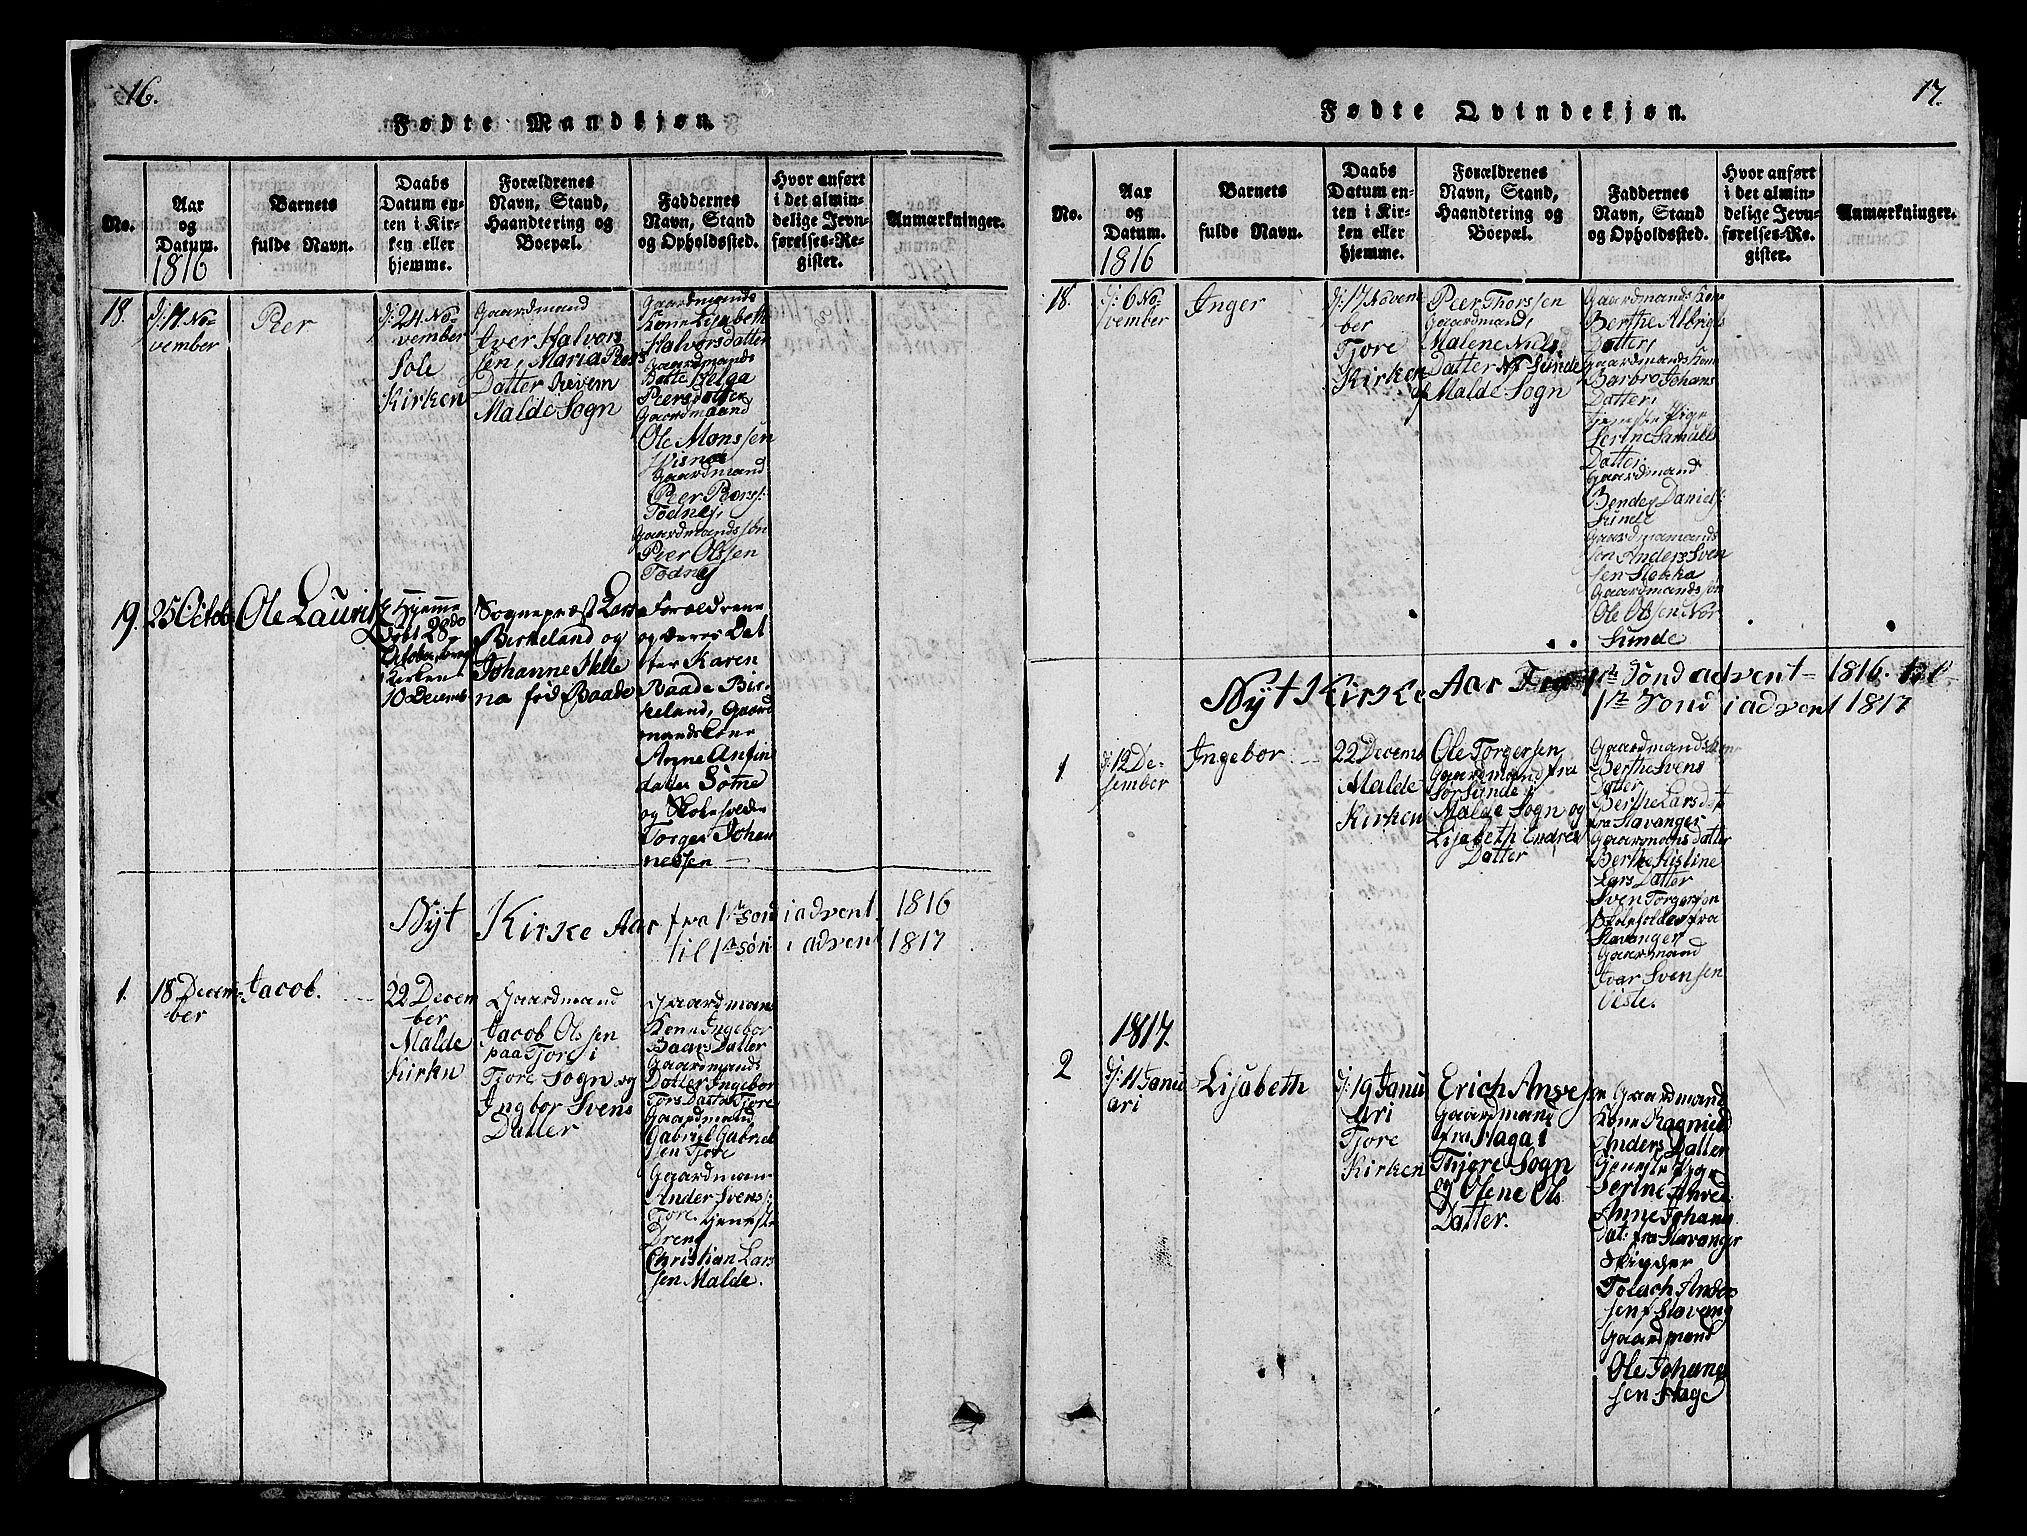 16.
Fødte Mandkjøn.
No.
Aar
og
Datum.
1816
Barnets
fulde Navn.
Daabs
Datum en-
ten i Kir-
ken eller
hjemme.
Forældrenes
Navn, Stand,
Haandtering og
Boepæl.
Faddernes
Navn, Stand
og Opholdssted.
Hvor anført
i det almin-
delige Jevn-
førelses-Re-
gister.
Anmærkninger.
18.
d: 17 No-
vember
Peer
d: 24 No-
vember
Sole
Kirken
Gaardmand
Iver Halvors
sen, Maria Peers
Datter
Malde Sogn
Gaardmands
Kone Lisabeth
Halvorsdatter
Gaardmands
Helga
Peersdatter
Gaardmaand
Ole Monssen
Gaardmand
Peer Peers:
Todnes,
Gaardmandssøn
Peer Olssen
Todnes
19.
25 Octob
Ole Laurits
Hjemme
døbt 28de
October,
Kirken
10 Decemb
Sognepræst Lars
Birkeland og
Johanne Hele
na fød Baade
Forældrene
og deres Dat
ter Karen
Baade Bir-
keland, Gaard
mandskone
Anne Anfin
datter Sømme
og Skoleholder
Torger Johan
nessen
Nyt Kirke Aar fra 1ste Sønd i advent 1816
til 1ste Søn i advent 1817
1.
18 Decem-
ber
Jacob.
22 Decem
ber
Malde
Kirken
Gaardmand
Jacob Olssen
paa Tjore i
Tjore Sogn og
Ingbor Svens
Datter
Gaardmans
Kone Ingebor
Baars Datter
Gaardmands
Dotter Ingebor
Tors Datter Tjore
Gaardmand
Gabriel Gabriel
sen Tjore
Gaardman
Ander Svens:
Tjore. tjeneste
Dreng
Christian Lars
sen Malde.
17.
Fødte Qvindekjøn.
No.
Aar
og
Datum.
1816
Barnets
fulde Navn.
Daabs
Datum en-
ten i Kir-
ken eller
hjemme.
Forældrenes
Navn, Stand,
Haandtering og
Boepæl.
Faddernes
Navn, Stand
og Opholdssted.
Hvor anført
i det almin-
delige Jevn-
førelses-Re-
gister.
Anmærkninger.
18.
d: 6 No-
vember
Inger
d: 17 Novem
ber
Tjore
Kirken
Peer Thorssen
Gaardmand,
Malene Niels
Datter Nr Sunde
af Malde Sogn
Gaardmands Kone
Berthe Albrigts
Datter,
Gaardmands Kone
Barbro Johans
Datter,
tjeneste Pige
Serine Samuels
Datter,
Gaardmand
Bendes Daniels:
Sunde
Gaardmamands
søn Anders Sven
sen Stokka
Gaardmandssøn
Ole Olssen Nor
Sunde
Nyt Kirke Aar 1ste Sønd advent 1816. til
1ste Sønd i advent 1817
1
d: 12 De-
sember
Ingebor
22 Decemb
Malde
Kirken
Ole Torgersen
Gaardmand fra
Sør Sunde i
Malde Sogn og
Lisabeth Endres
Datter
Gaardmands Kone
Berthe Svens
Datter
Berthe Larsdat
fra Stavanger
Gaardmans Datter
Berthe Kistine
Lars Datter
Sven Torgerson
Skoleholder fra
Stavanger
Gaardmand
Ivar Svensen
Viste.
1817.
2
d: 11 Janu
ari
Lisabeth
d: 19 Janu
ari
Tjore
Kirken
Erich
Gaardmand
fra Haga i
Thjore Sogn
og Olene Ols
Datter.
Gaardmand
Kone Ragnild
Anders Datter
tjeneste Pige
Serine
Anne Johans
Dat: fra Stavanger
Skipper
Tolach Anders
sen f Stavang
Gaardmand
Ole Johanes
sen Hage